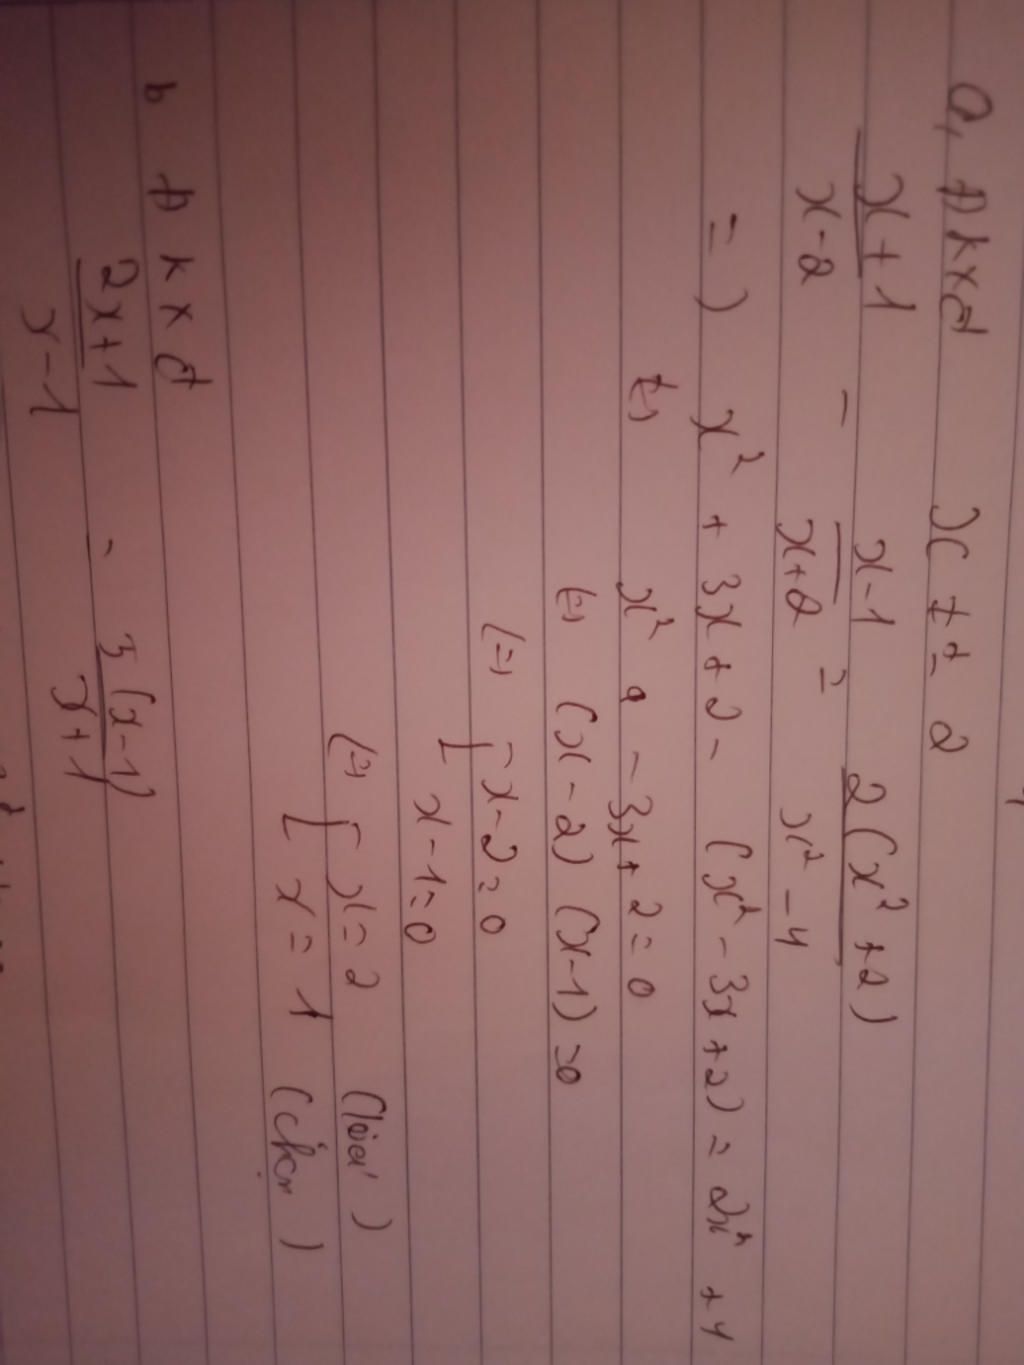 a, Đkxđ x ≠ ± 2
x+1 / x-2 - x-1 / x+2 = 2(x²+2) / x²-4
=) x² + 3x + 2 - (x² - 3x + 2) = 2x² + 4
(=) x² - 3x + 2 = 0
(=) (x-2) (x-1) = 0
(=) [ x-2=0
x-1=0
(=) [ x=2 (loại)
x=1 (chọn)
b Đkxđ
2x+1 / x-1 = 5(x-1) / x+1